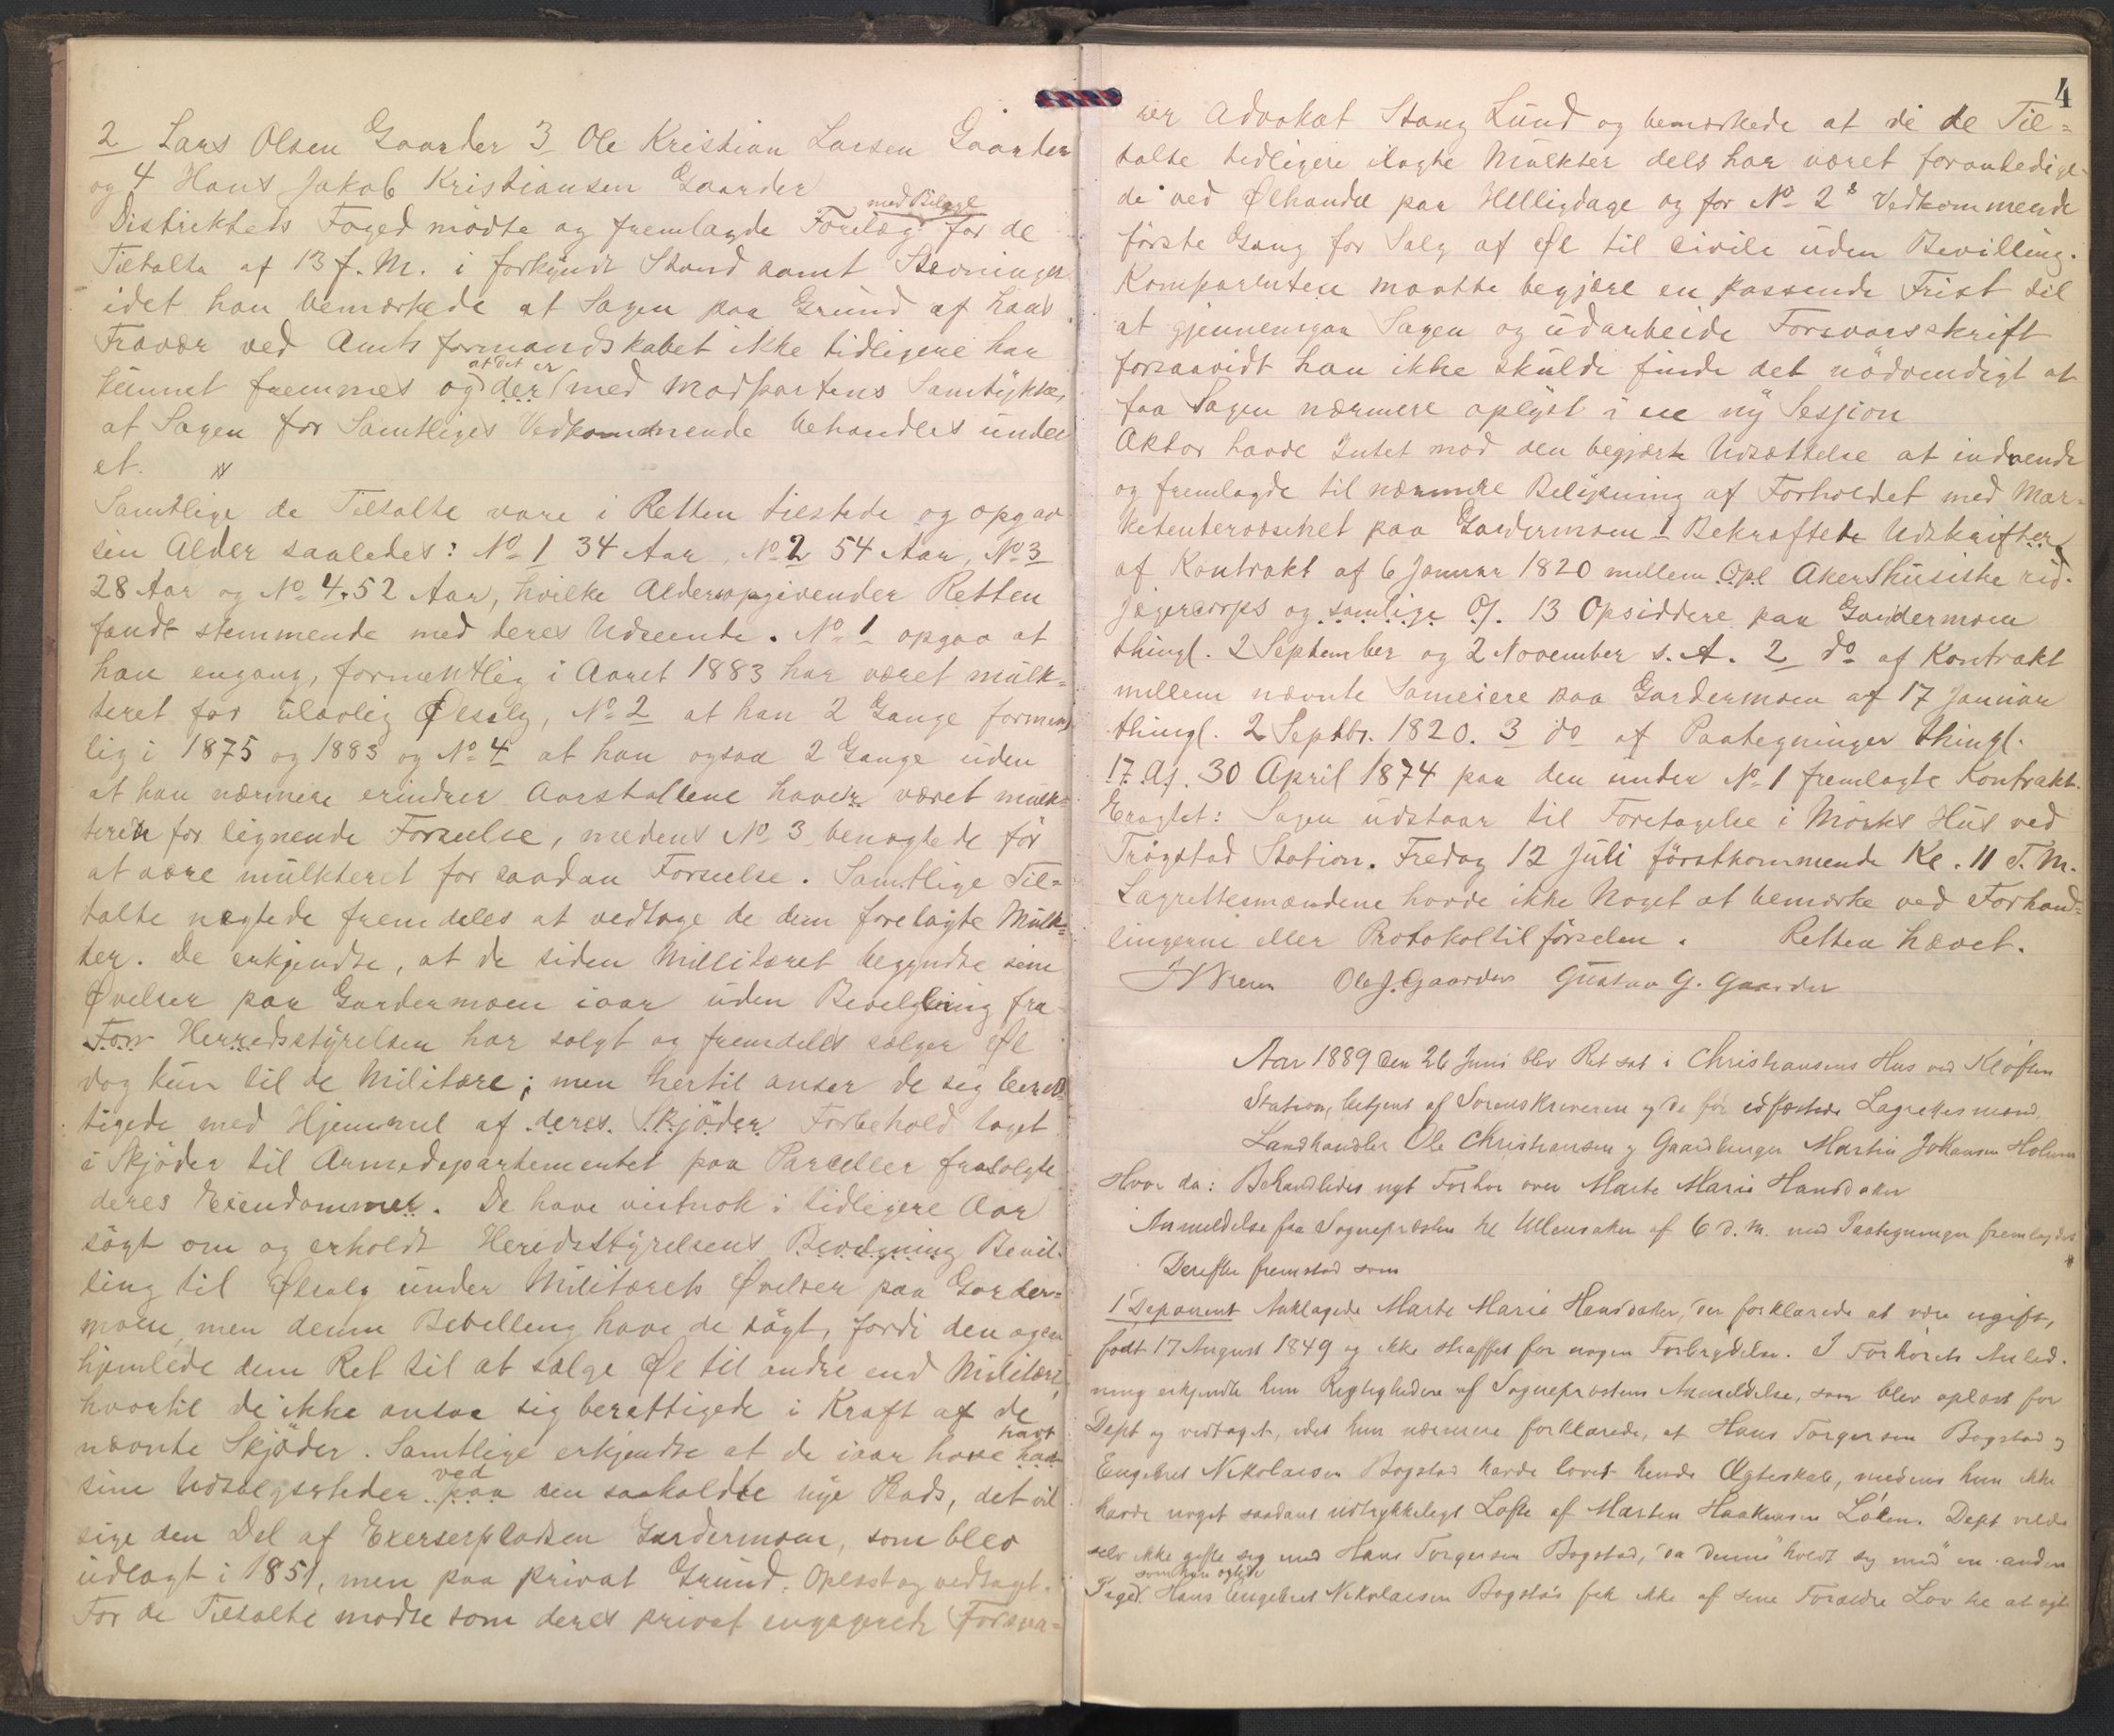 2 Lars Olsen Gaarder 3 Ole Kristian Larsen Gaarder
og 4 Hans Jakob Kristiansen Gaarder
med Bilage
Distriktets Foged mødte og fremlagde Forelæg for de
Tiltalte af 13 f. M. i forkyndt Stand samt Stevninger
idet han bemærkede at Sagen paa Grund af hans
Fravær ved Amtsformandskabet ikke tidligere har
at det er
kunnet fremmes og der med Modpartens Samtykke,
at Sagen for Samtliges Vedkommende behandles under
et.
Samtlige de Tiltalte vare i Retten tilstede og opgav
sin Alder saaledes: No 1 34 Aar, No 2 54 Aar, No 3
28 Aar og No 4. 52 Aar, hvilke Aldersopgivender Retten
fandt stemmende med deres Udseende. No 1 opgav at
han engang, formentlig i Aaret 1883 har været mulk=
teret for ulovlig Ølsalg, No 2 at han 2 Gange forment
lig i 1875 og 1883 og No 4 at han ogsaa 2 Gange uden
at han nærmere erindrer Aarstallene haver været mulk=
teren for lignende Forseelse, medens No 3 benægtede før
at være mulkteret for saadan Forseelse. Samtlige Til=
talte nægtede fremdeles at vedtage de dem forelagte Mulk=
ter. De erkjendte, at de siden Millitæret begyndte sine
Øvelser paa Gardermoen iaar uden Bevilgning fra
Forr Herredsstyrelsen har solgt og fremdeles sælger Øl
dog kun til de Militære; men hertil anser de sig beret
tigede med Hjemmel af deres Skjøder Forbehold taget
i Skjøder til Armedepartementet paa Parceller frasolgte
deres Eiendommer. De have vistnok i tidligere Aar
søgt om og erholdt Heredsstyrelsens Bevilgning Bevil=
ling til Ølsalg under Militærets Øvelser paa Garder=
moen, men denne Bevilling have de søgt, fordi den ogsaa
hjemlede dem Ret til at sælge Øl til andre end Militære,
hvortil de ikke ansaa sig berettigede i Kraft af de
havt
nævnte Skjøder. Samtlige erkjendte at de iaar have had
ved
sine Udsalgssteder paa den saakaldte nye Plads, det vil
sige den Del af Exerserpladsen Gardermoen, som blev
udlagt i 1851, men paa privat Grund. Oplæst og vedtaget.
For de Tiltalte mødte som deres privat engagerede Forsva=
4
rer Advokat Stang Lund og bemærkede at de de Til=
talte tidligere ilagte Mulkter dels har været foranledige
de ved Ølhandel paa Helligdage og for No 2s Vedkommende
første Gang for Salg af Øl til Civile uden Bevilling.
Komparenten maatte begjære en passende Frist til
at gjennemgaa Sagen og udarbeide Forsvarsskrift
forsaavidt han ikke skulde finde det nødvendigt at
faa Sagen nærmere oplyst i en ny Session
Aktor havde Intet mod den begjærte Udsættelse at indvende
og fremlagde til nærmere Belysning af Forholdet med Mar=
ketentervæsenet paa Gardermoen 1 Bekræftede Udskrifter
af Kontrakt af 6 Januar 1820 mellem Opl Akershusiske rid.
jægercorps og samlige Oj. 13 Opsiddere paa Gardermoen
thingl. 2 September og 2 November s. A. 2 do af Kontrakt
mellem nævnte Sameiere paa Gardermoen af 17 Januar
thingl. 2 Septbr. 1820. 3 do af Paategninger thingl.
17. Aj. 30 April 1874 paa den under No 1 fremlagte Kontrakt.
Eragtet: Sagen udstaar til Foretagelse i Mørks Hus ved
Trøgstad Station. Fredag 12 Juli førstkommende Kl. 11 F. M.
Lagrettesmændene havde ikke Noget at bemærke ved Forhand=
lingerne eller Protokoltilførselen. Retten hævet.
Ole J. Gaarder Gustav G. Gaarder
Aar 1889 den 26 Juni blev Ret sat i Christiansens Hus ved Kløften
Station, betjent af Sorenskriveren og de før edfæstede Lagrettesmænd
Landhandler Ole Christiansen og Gaardbruger Martin Johansen Holum
Hvor da: Behandledes nyt Forhør over Marte Marie Hansdatter
Anmeldelse fra Sognepræsten til Ullensaker af 6 d. M. med Paategninger fremlagdes
Derefter fremstod som
1 Deponent Anklagede Marte Marie Hansdatter, der forklarede at være ugift,
født 17 August 1849 og ikke straffet for nogen Forbrydelse. I Forhørets Anled.
ning erkjendte hun Rigtigheden af Sognepræstens Anmeldelse, som blev oplæst for
Dept og vedtaget, idet hun nærmere forklarede, at Hans Torgersen Bogstad og
Engebret Nikolaisen Bogstad havde lovet hende Ægteskab, medens hun ikke
havde noget saadant udtrykkeligt Løfte af Marten Haakensen Løken. Dept vilde
selv ikke gifte sig med Hans Torgersen Bogstad, da denne "holdt sig med" en anden
som han ægtede
Pige. Hans Engebret Nikolaisen Bogstad fik ikke af sine Forældre Lov til at ægte